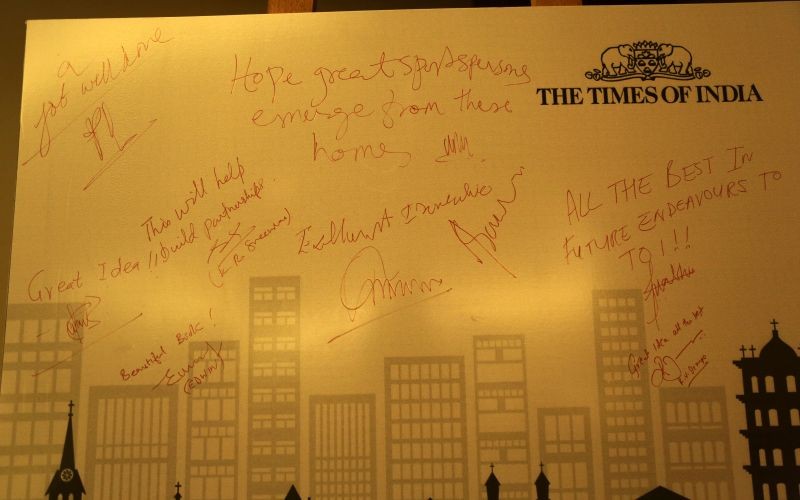 a
job well done
Hope great sportspersons
emerge from these
homes
THE TIMES OF INDIA
This will help
build partnerships.
Great Idea !!
ALL THE BEST IN
FUTURE ENDEAVOURS TO
TOI!!
Beautiful Book!
(EDWIN)
Great idea all the best